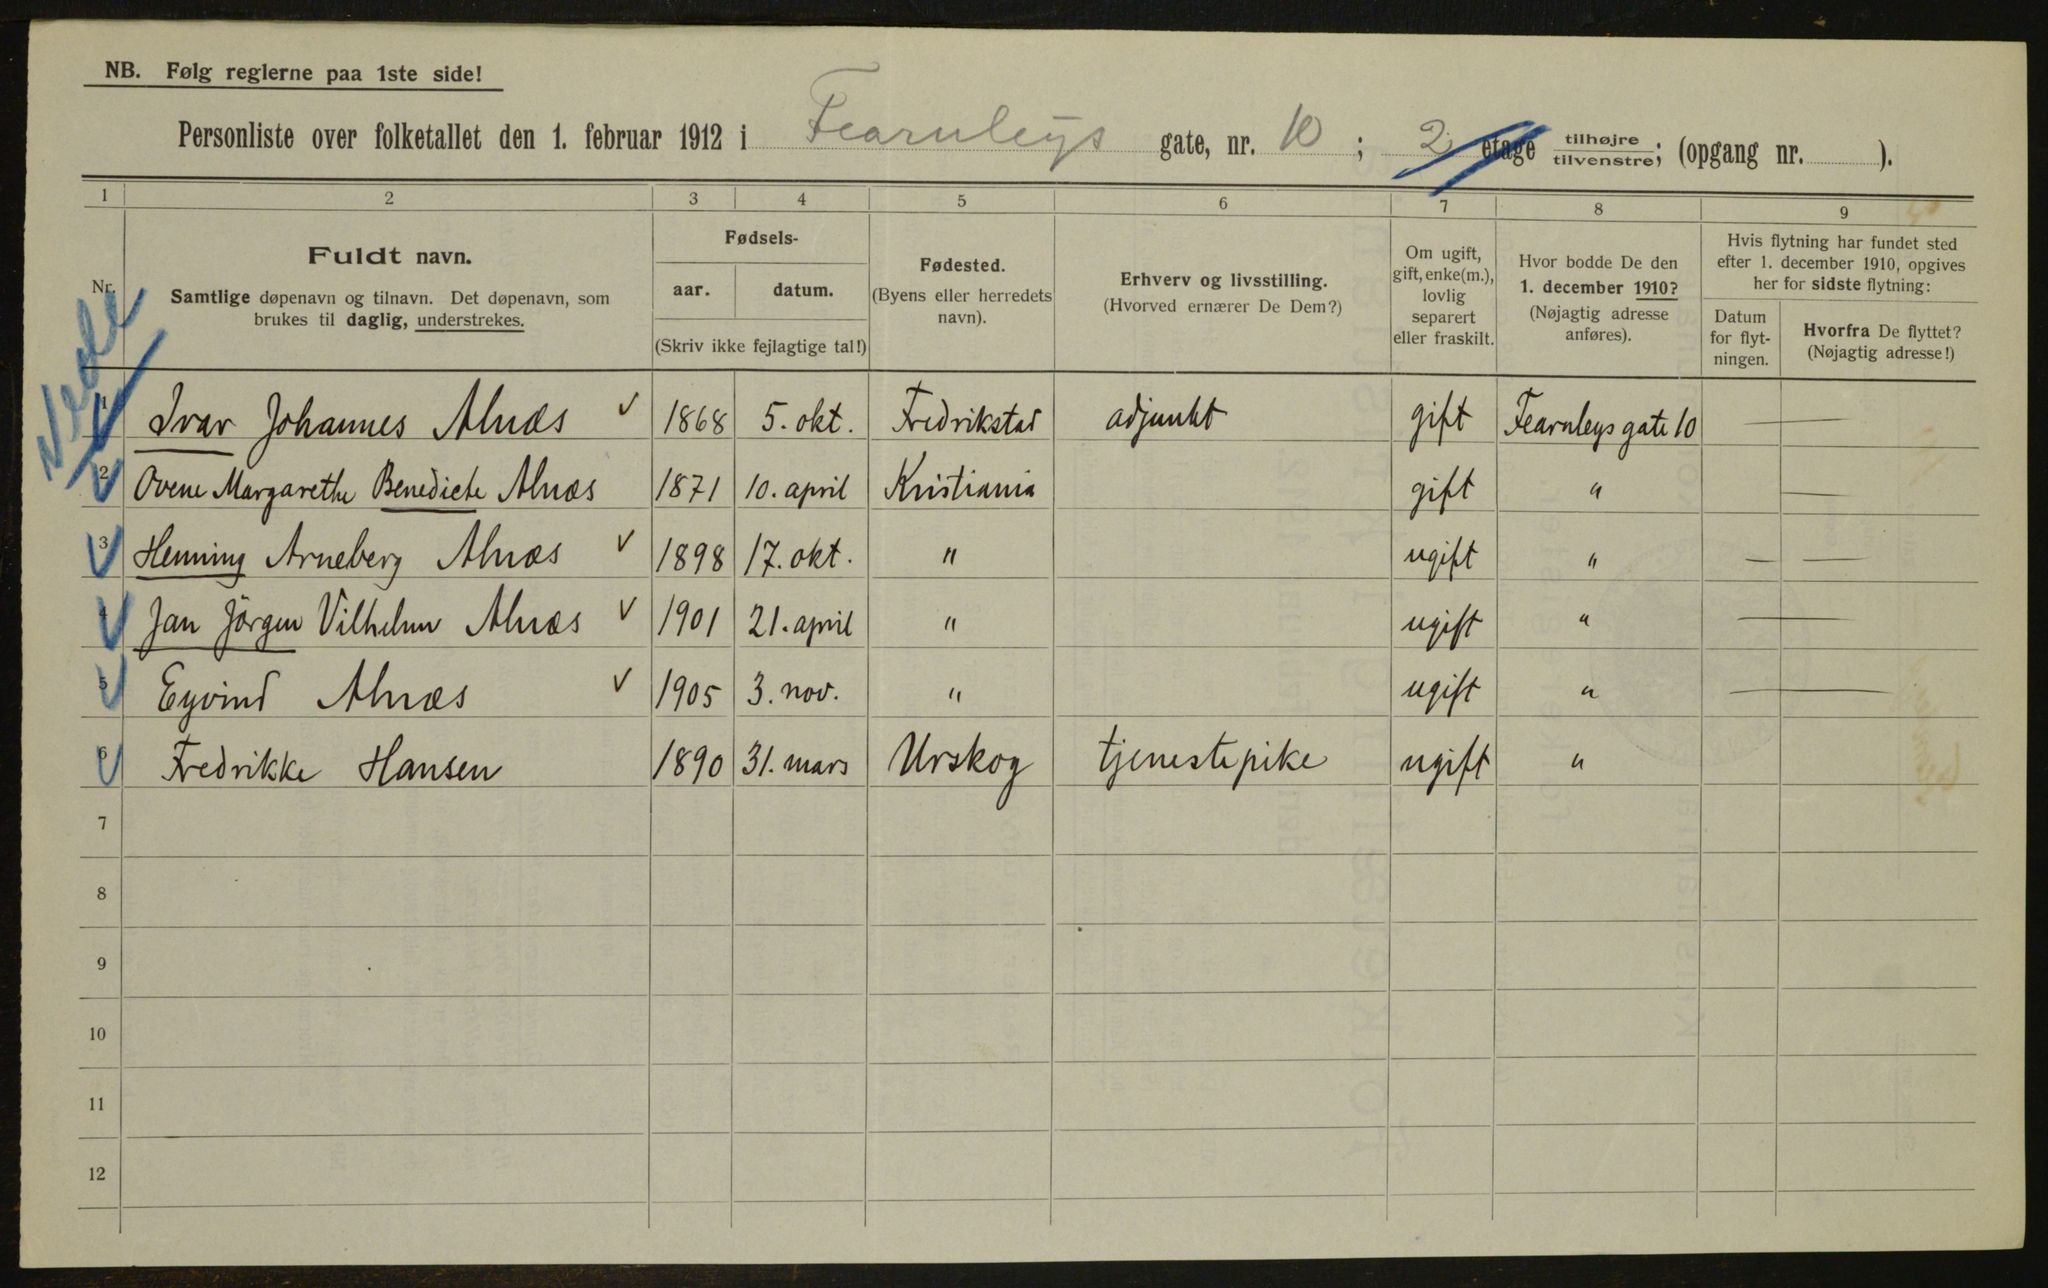 NB. Følg reglerne paa 1ste side!
Personliste over folketallet den 1. februar 1912 i Fearnleys gate, nr. 10 ; 2 etage tilhøjre tilvenstre; (opgang nr. ).
1 2 3 4 5 6 7 8 9
Nr.
Fuldt navn.
Samtlige døpenavn og tilnavn. Det døpenavn, som
brukes til daglig, understrekes.
Fødsels-
aar. datum.
(Skriv ikke fejlagtige tal!)
Fødested.
(Byens eller herredets
navn).
Erhverv og livsstilling.
(Hvorved ernærer De Dem?)
Om ugift,
gift, enke(m.),
lovlig
separert
eller fraskilt.
Hvor bodde De den
1. december 1910?
(Nøjagtig adresse
anføres).
Hvis flytning har fundet sted
efter 1. december 1910, opgives
her for sidste flytning:
Datum
for flyt-
ningen.
Hvorfra De flyttet?
(Nøjagtig adresse!)
1 Ivar Johannes Alnæs 1868 5. okt. Fredrikstad adjunkt gift Fearnleys gate 10 —
2 Ovene Margarethe Benedicte Alnæs 1871 10. april Kristiania gift " —
3 Henning Arneberg Alnæs 1898 17. okt. " ugift " — —
4 Jan Jörgen Vilhelm Alnæs 1901 21. april " ugift " —
5 Eyvind Alnæs 1905 3. nov. " ugift " —
6 Fredrikke Hansen 1890 31. mars Urskog tjenestepike ugift "
7
8
9
10
11
12